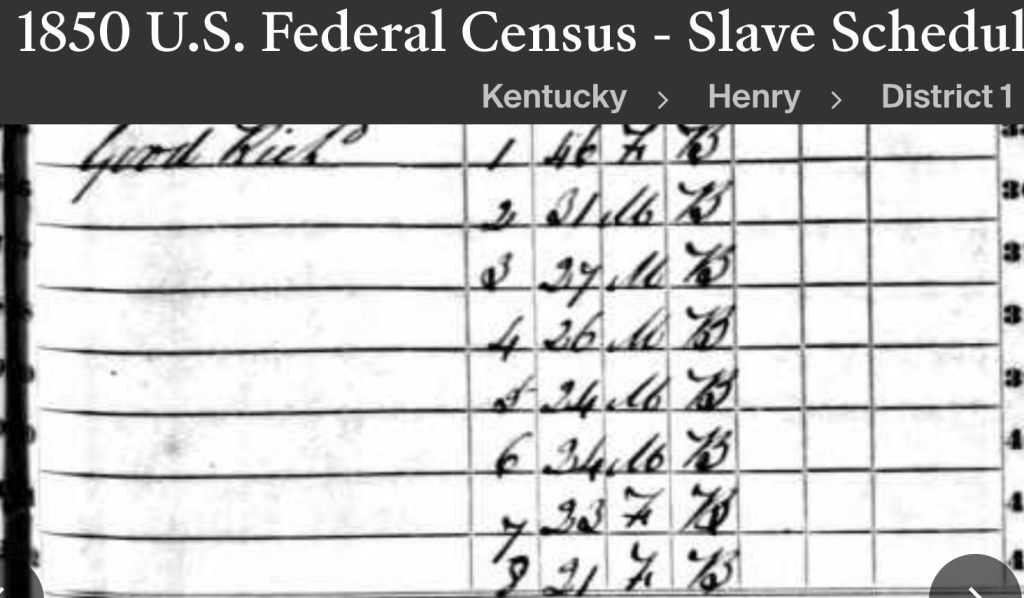 1850 U.S. Federal Census - Slave Schedul
Kentucky > Henry > District 1
Good Rich 1 46 F B
2 31 M B
3 27 M B
4 26 M B
5 24 M B
6 34 M B
7 23 F B
8 21 F B